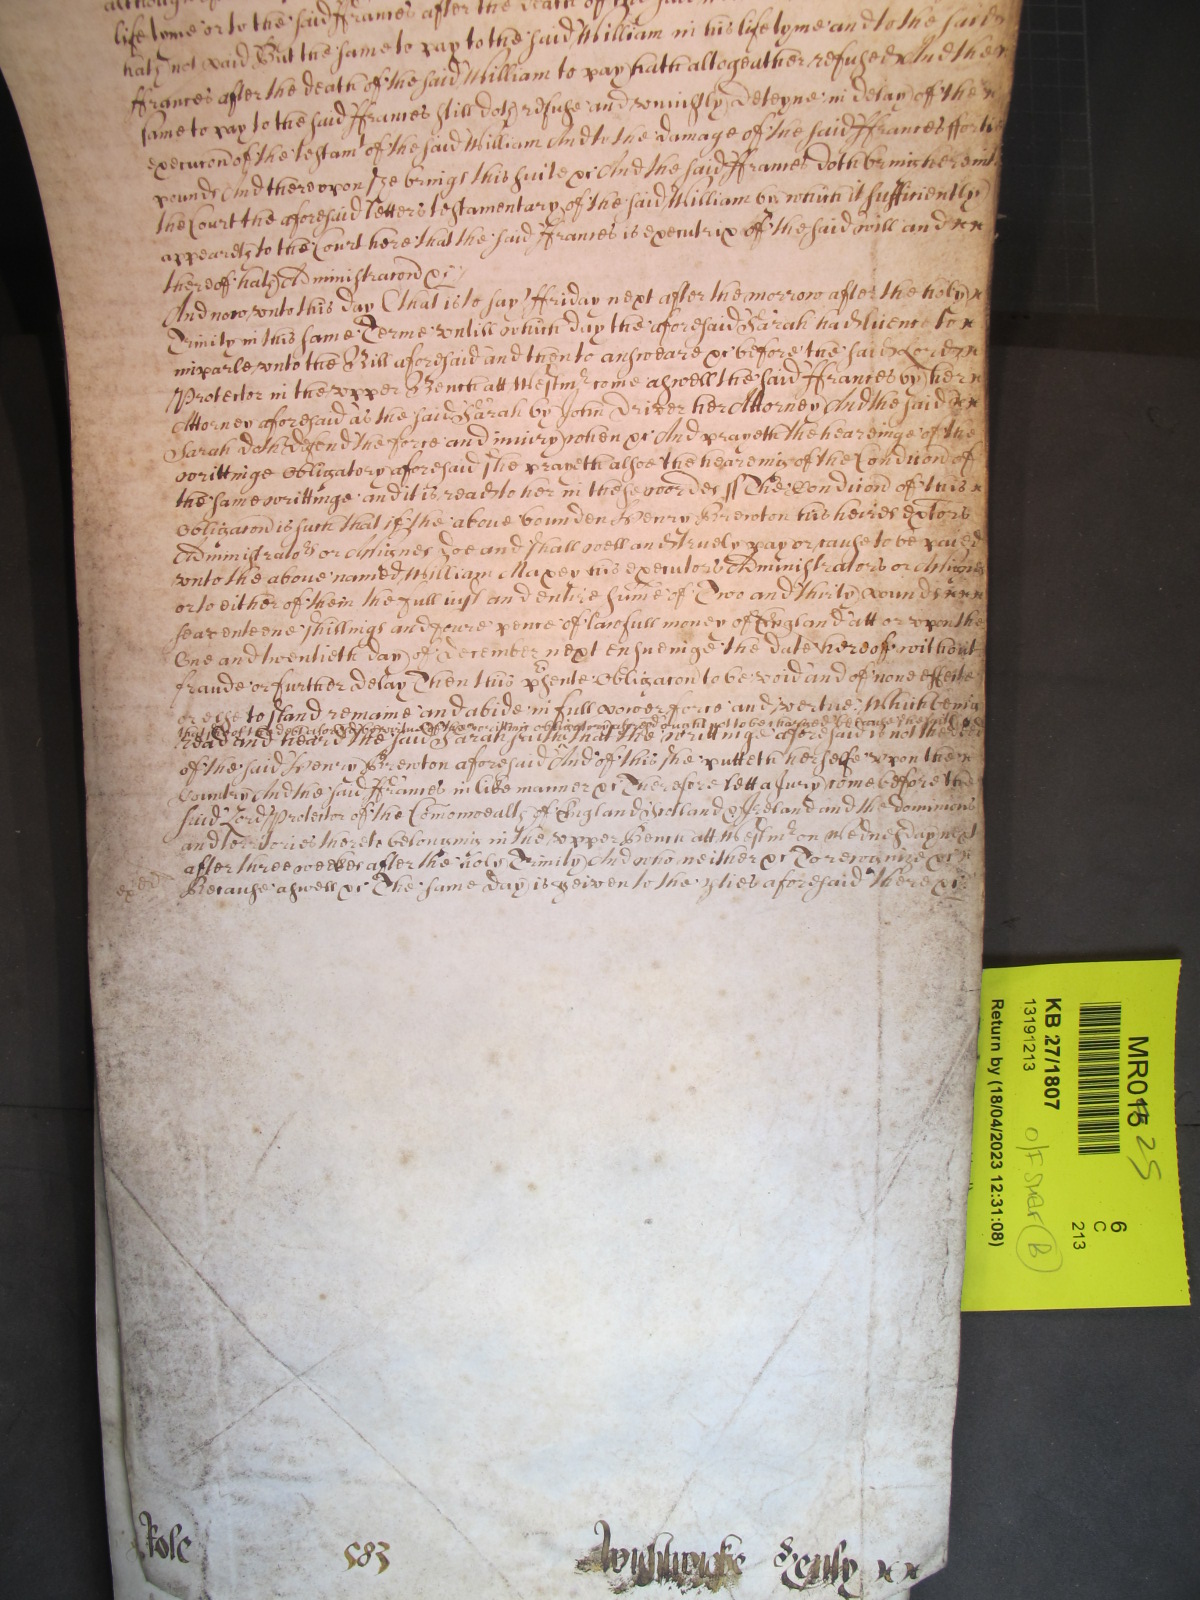 life tyme or to the said ffrances after the death of the said
hath not paid But the same to pay to the said William in his life tyme and to the said
ffrances after the death of the said William to pay hath altogeather refused And the
same to pay to the said ffrances still doth refuse and uniustly deteyne in delay of the
execucon of the testamt of the said William And to the damage of the said ffrances fortie
pounds And thereupon she brings this suite &c And the said ffrances doth bring here into
the Court the aforesaid letters testamentary of the said William by which it sufficiently
appeareth to the Court here that the said ffrances is executrix of the said will and
thereof hath Administracon &c
And now unto this day (that is to say) ffriday next after the morrow after the holy
Trinity in this same Terme untill which day the aforesaid Sarah had licence to
imparle unto the Bill aforesaid and then to answeare &c before the said Lord
Protector in the upper Bench att Westmr come aswell the said ffrances by her
Attorney aforesaid as the said Sarah by John Driver her Attorney And the said
Sarah doth defend the force and iniury when &c And prayeth the hearinge of the
writtinge obligatory aforesaid she prayeth alsoe the heareing of the Condicon of
the same writtinge and it is read to her in these wordes ss The Condicon of this
obligacon is such that if the above bounden Henry Brewton his heires Exators
Administrators or Assignes doe and shall well and truely pay or cause to be paied
unto the above named William Maxey his executors Administrators or Assignes
or to either of them the full iust and entire sume of Two and thirty pounds
seaventeene shillings and foure pence of lawfull money of England att or upon the
One and twentieth day of December next ensueinge the date hereof without
fraude or further delay Then this psente obligacon to be void and of none effecte
or else to stand remaine and abide in full power force and vertue. Which being
read and heard the said Sarah saith that the writtinge aforesaid is not the deed
of the said Henry Brewton aforesaid And of this she putteth herselfe upon the
Country And the said ffrances in like manner &c Therefore lett a Jury come before the
said Lord Protector of the Comonwealth of England Scotland & Ireland and the dominions
and terrtories thereto belonging in the upper Bench att Westmr on Wednesday next
after three weekes after the holy Trinity And who neither &c To recognize &c
Because aswell &c The same day is geiven to the pties aforesaid there &c
Role 583 Wightwicke &
MR015 25
KB 27/1807
13191213
Return by (18/04/2023 12:31:08)
6
C
213
O/F SMAF B